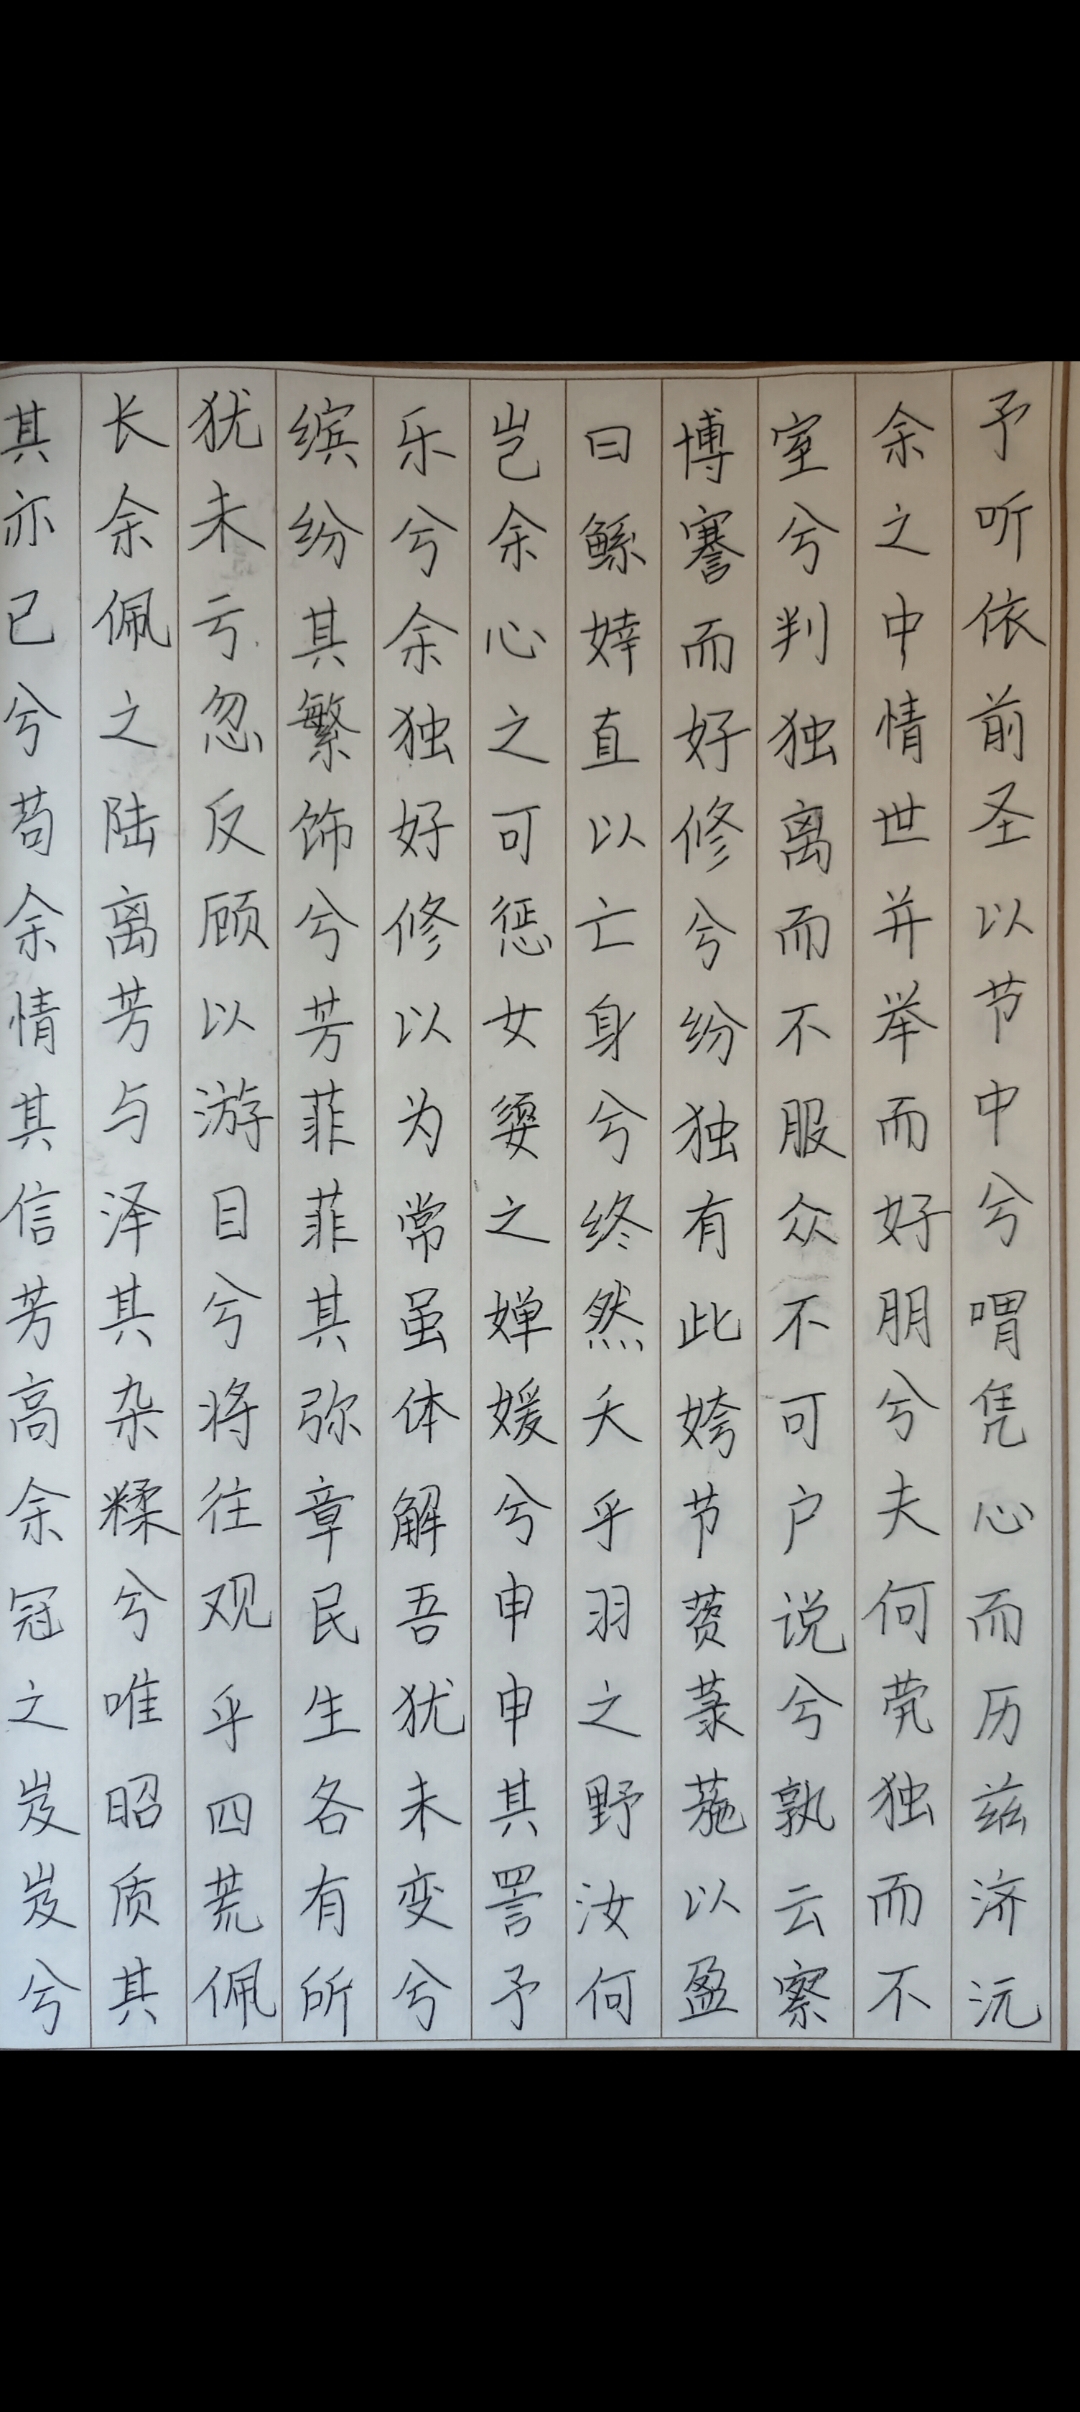 其亦已兮苟余情其信芳高余冠之岌岌兮
长余佩之陆离芳与泽其杂糅兮唯昭质其
犹未亏忽反顾以游目兮将往观乎四荒佩
缤纷其繁饰兮芳菲菲其弥章民生各有所
乐兮余独好修以为常虽体解吾犹未变兮
岂余心之可惩女媭之婵媛兮申申其詈予
曰鲧婞直以亡身兮终然夭乎羽之野汝何
博謇而好修兮纷独有此姱节薋菉葹以盈
室兮判独离而不服众不可户说兮孰云察
余之中情世并举而好朋兮夫何茕独而不
予听依前圣以节中兮喟凭心而历兹济沅